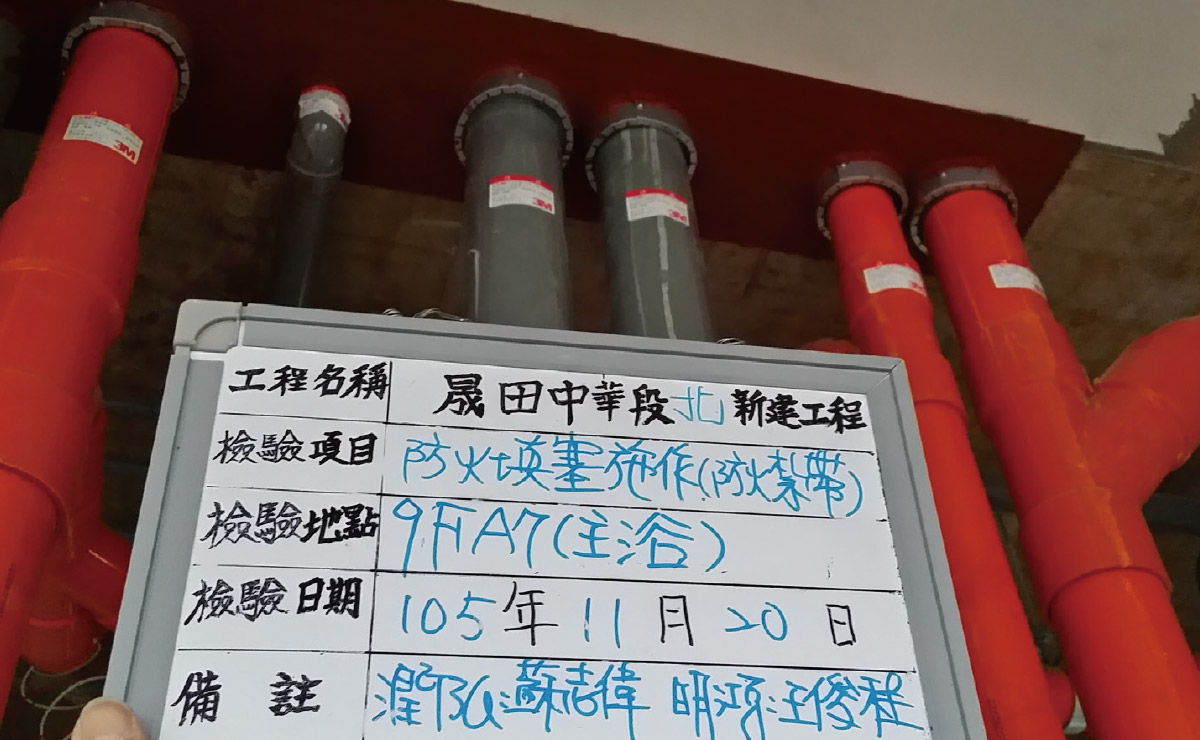 3M
3M
3M
3M
工程名稱 晟田中華段北新建工程
檢驗項目 防火填塞施作(防火紮帶)
檢驗地點 9F A7(主浴)
檢驗日期 105年11月20日
備註 潤弘蘇志偉 明鴻汪俊程